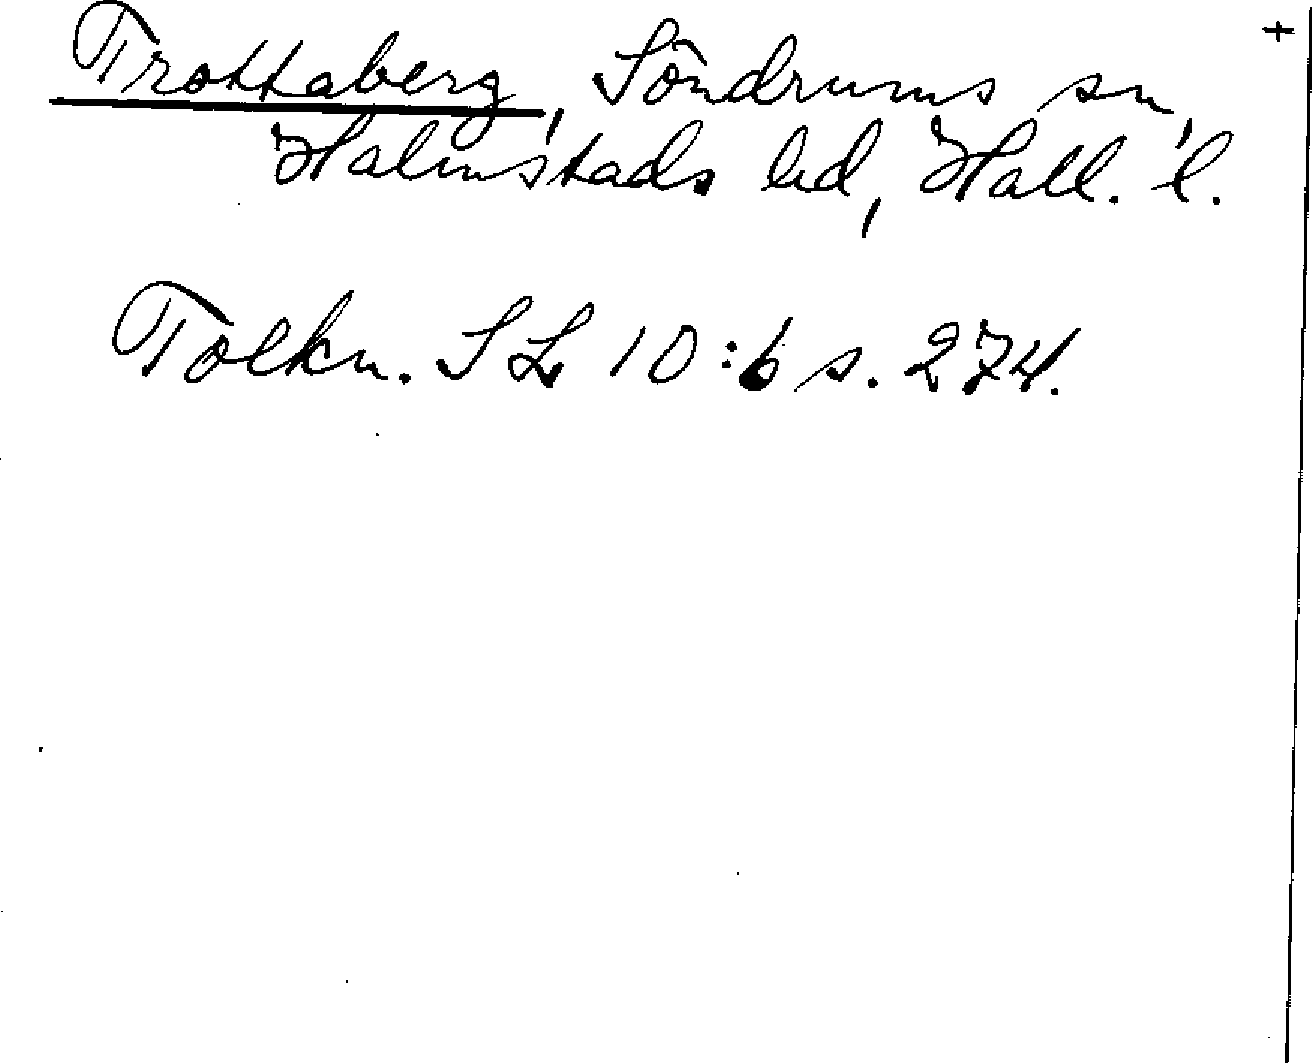 Trottaberg, Söndrums sn, +
Halmstads hd, Hall. l.
Tolkn. SL 10:6 s. 274.